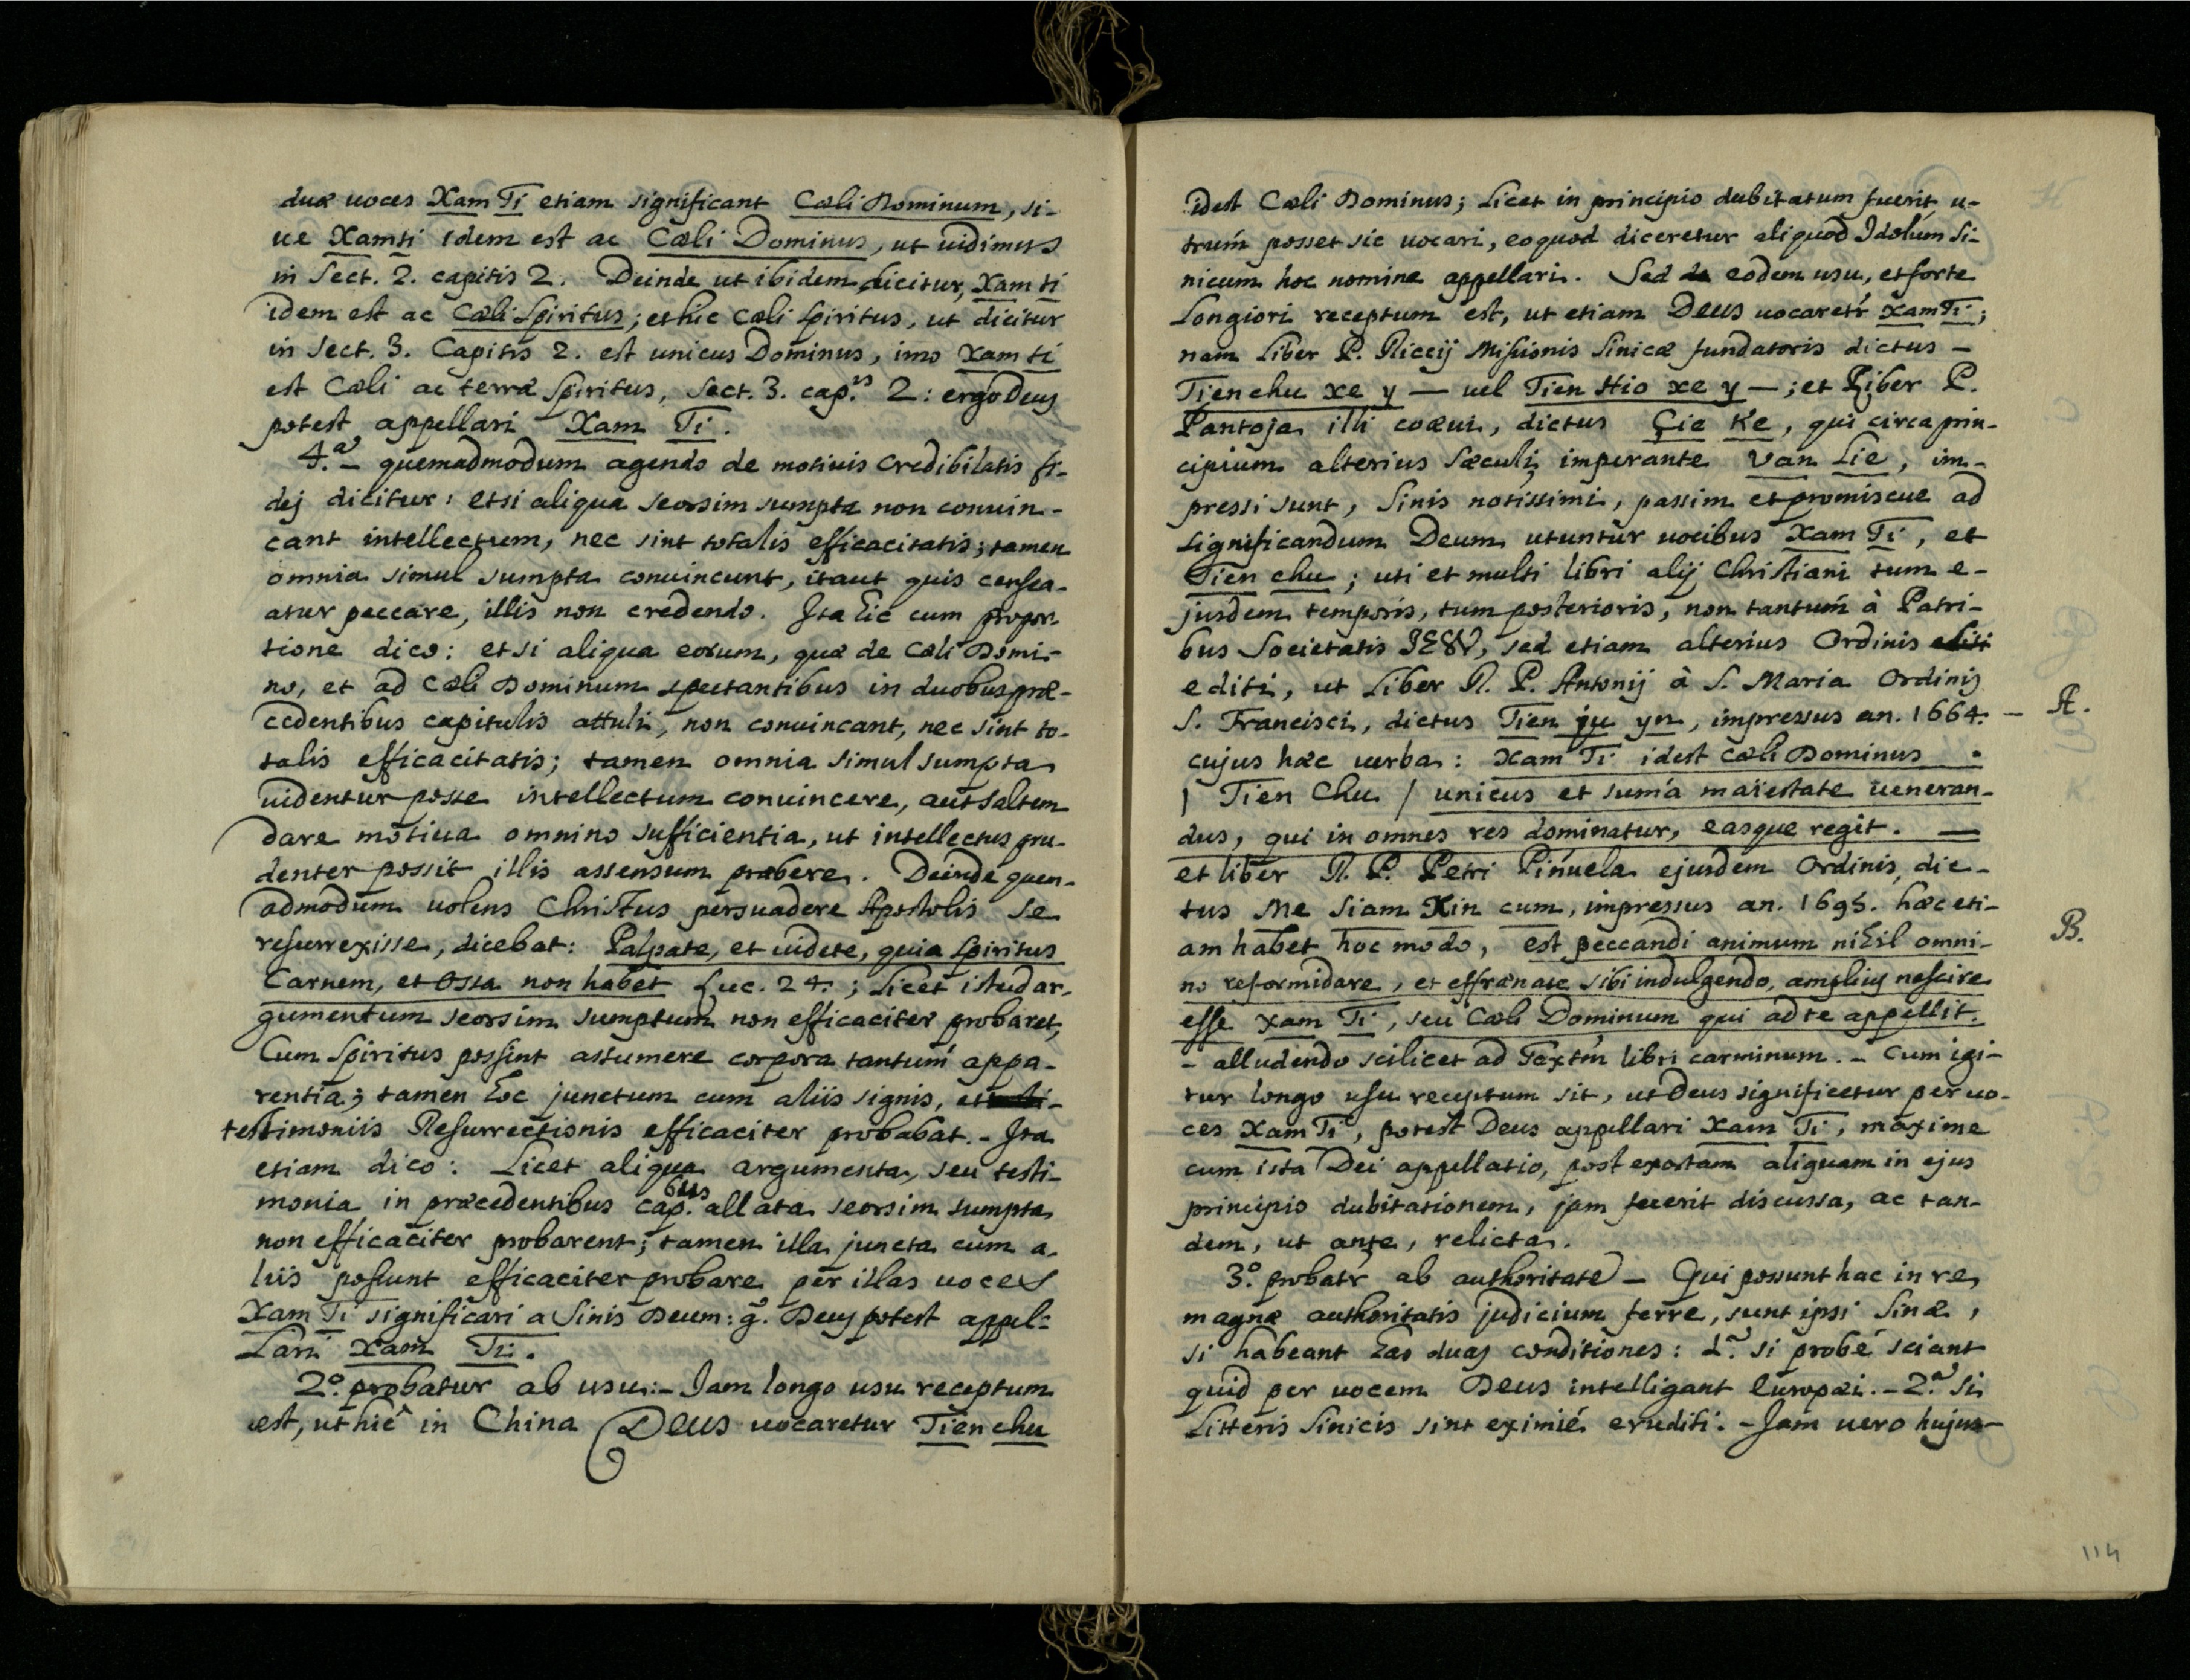 duæ uoces Xam Ti etiam significant Cæli Dominum, si-
ue Xam ti idem est ac Cæli Dominus, ut uidimus
in Sect. 2. capitis 2. Deinde ut ibidem dicitur, Xam ti
idem est ac Cæli Spiritus; et hic Cæli Spiritus, ut dicitur
in Sect. 3. Capitis 2. est unicus Dominus, imo Xam ti
est Cæli ac terræ Spiritus, Sect. 3. cap.is 2: ergo Deus
potest appellari Xam Ti.
4.a – quemadmodum agendo de motiuis Credibilitatis fi-
dej dicitur: etsi aliqua seorsim sumpta non conuin-
cant intellectum, nec sint totalis efficacitatis; tamen
omnia simul sumpta conuincunt, itaut quis censea-
atur peccare, illis non credendo. Ita hic cum propor-
tione dico: etsi aliqua eorum, quæ de Cæli Domi-
no, et ad Cæli Dominum spectantibus in duobus præ-
cedentibus capitulis attuli, non conuincant, nec sint to-
talis efficacitatis; tamen omnia simul sumpta
uidentur posse intellectum conuincere, aut saltem
dare motiua omnino sufficientia, ut intellectus pru-
denter possit illis assensum præbere. Deinde quem-
admodum uolens Christus persuadere Apostolis se
resurrexisse, dicebat: Palpate, et uidete, quia Spiritus
Carnem, et Ossa non habet Luc. 24.; licet istud ar-
gumentum seorsim sumptum non efficaciter probaret,
Cum Spiritus possint assumere corpora tantum appa-
rentia; tamen hoc junctum cum aliis signis, et
testimoniis Resurrectionis efficaciter probabat. – Ita
etiam dico: Licet aliqua argumenta, seu testi-
monia in præcedentibus cap.bus allata seorsim sumpta
non efficaciter probarent; tamen illa juncta cum a-
liis possunt efficaciter probare per illas uoces
Xam Ti significari a Sinis Deum: g.o Deus potest appel-
lari Xam Ti.
2.o probatur ab usu: – Jam longo usu receptum
est, ut hic in China Deus uocaretur Tien chu
idest Cæli Dominus; licet in principio dubitatum fuerit, u-
trum posset sic uocari, eoquod diceretur aliquod Idolum Si-
nicum hoc nomine appellari. Sed eodem usu, et forte
longiori receptum est, ut etiam Deus uocaretr Xam Ti;
nam Liber P. Riccij Missionis Sinicæ fundatoris dictus –
Tien chu xe y – uel Tien Hio xe y –; et Liber P.
Pantoja illi coæui, dictus Çie Ke, qui circa prin-
cipium alterius Sæculi, imperante Van Lie, im-
pressi sunt, Sinis notissimi, passim et promiscue ad
significandum Deum utuntur uocibus Xam Ti, et
Tien chu; uti et multi libri alij Christiani tum e-
jusdem temporis, tum posterioris, non tantum à Patri-
bus Societatis IESU, sed etiam alterius Ordinis editi
editi, ut Liber R. P. Antonij à S. Maria Ordinis
S. Francisci, dictus Tien ju yn, impressus an. 1664. – A.
cujus hæc uerba: Xam Ti idest Cæli Dominus
/ Tien Chu / unicus et suma maiestate ueneran-
dus, qui in omnes res dominatur, easque regit. –
et liber R. P. Petri Piñuela ejusdem Ordinis, dic-
tus Me Siam Xin cum, impressus an. 1695. hæc eti-
am habet hoc modo, est peccandi animum nihil omni- B.
no reformidare, et effrænate sibi indulgendo, amplius nescire
esse Xam Ti, seu Cæli Dominum qui ad te appellit.
– alludendo scilicet ad Textm libri carminum. – Cum igi-
tur longo usu receptum sit, ut Deus significetur per uo-
ces Xam Ti, potest Deus appellari Xam Ti, maxime
cum ista Dei appellatio, post exortam aliquam in ejus
principio dubitationem, jam fuerit discussa, ac tan-
dem, ut ante, relicta.
3.o probatr ab authoritate – Qui possunt hac in re,
magnæ authoritatis judicium ferre, sunt ipsi Sinæ,
si habeant has duas conditiones: 1.a si probé sciant
quid per uocem Deus intelligant Europæi. – 2.a si
Litteris Sinicis sint eximié eruditi. – Jam uero hujus-
114